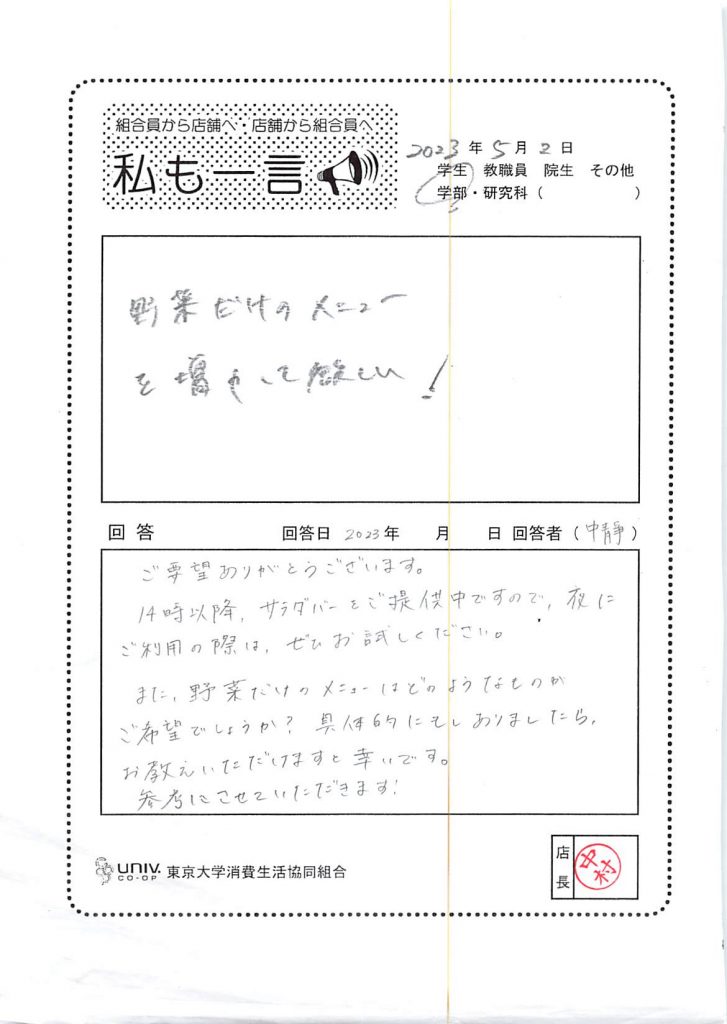 組合員から店舗へ・店舗から組合員へ
私も一言
2023年5月2日
学生 教職員 院生 その他
学部・研究科( )
野菜だけのメニュー
を増やして欲しい!
回答 回答日 2023年 月 日 回答者(中静)
ご要望ありがとうございます。
14時以降、サラダバーをご提供中ですので、夜に
ご利用の際は、ぜひお試しください。
また、野菜だけのメニューはどのようなものが
ご希望でしょうか? 具体的にもしありましたら、
お教えいただけますと幸いです。
参考にさせていただきます!
UNIV. CO-OP 東京大学消費生活協同組合
店長 中村